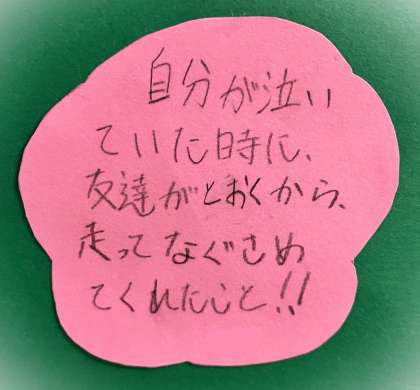 自分が泣い
ていた時に、
友達がとおくから、
走ってなぐさめ
てくれたこと!!